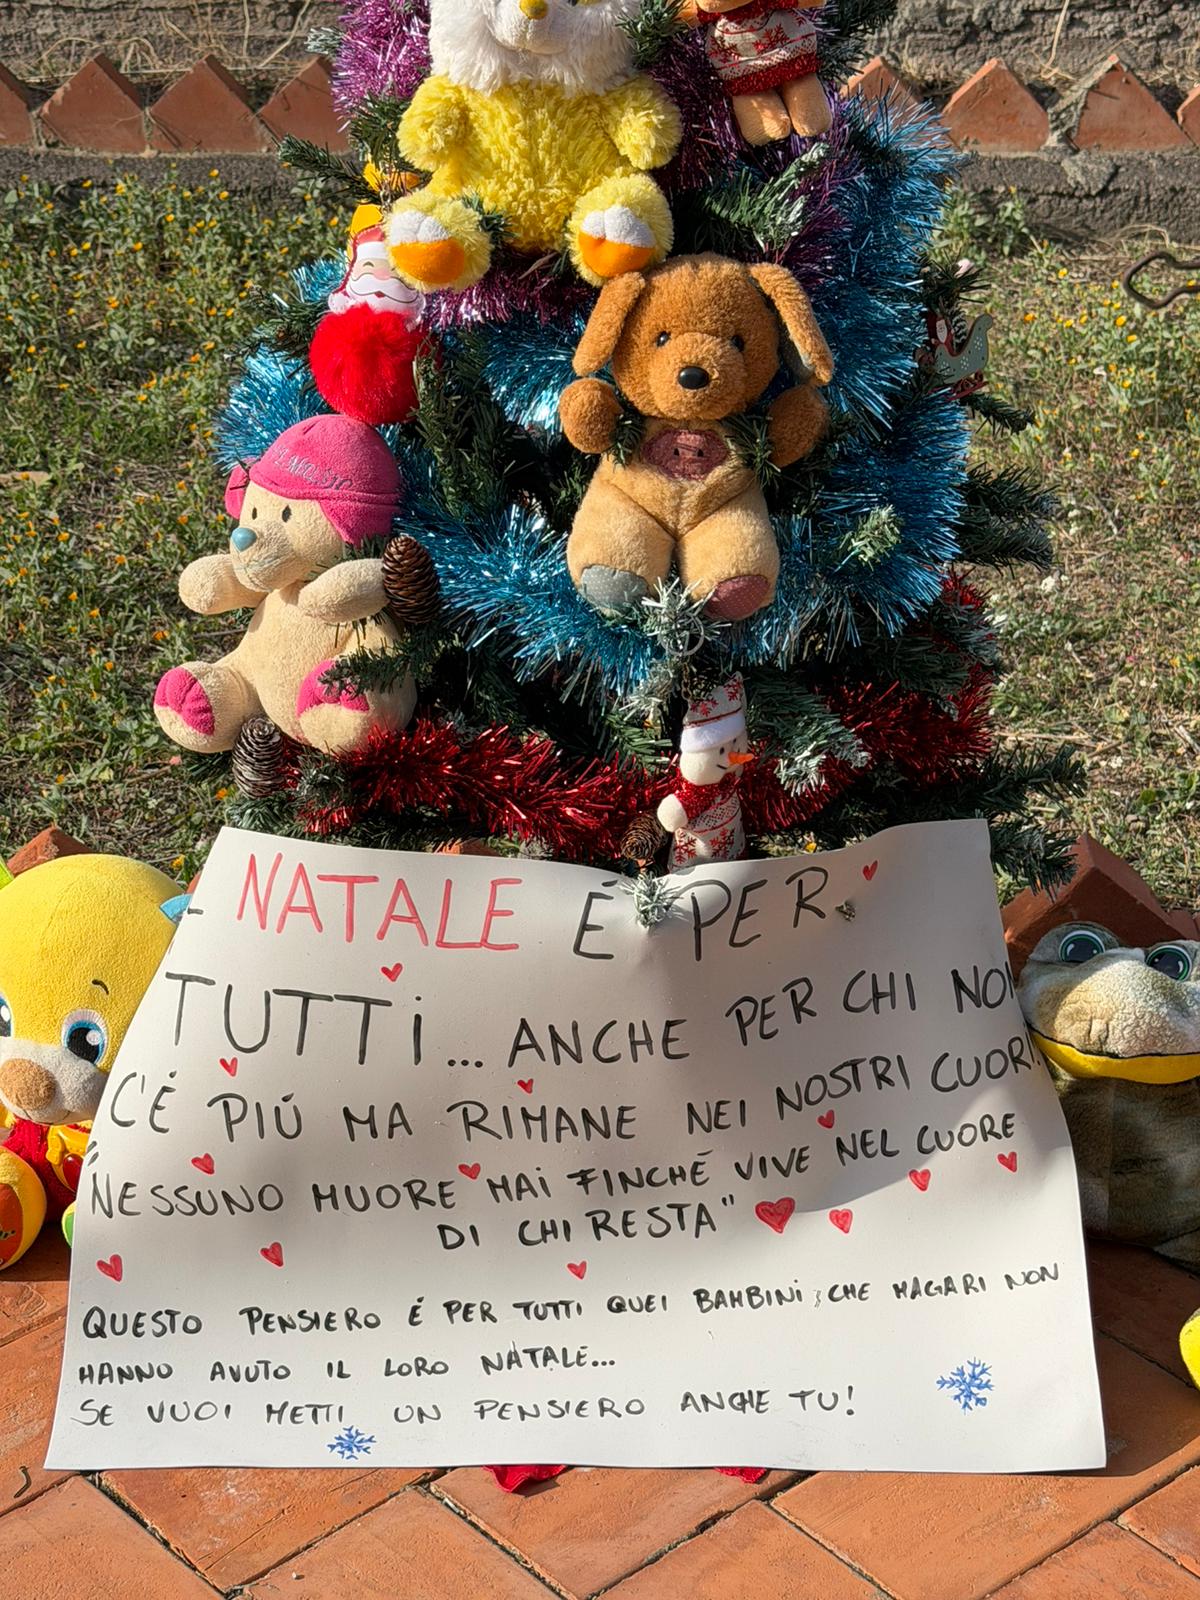 NATALE É PER
TUTTi... ANCHE PER CHI NON
C'É PIÚ MA RIMANE NEI NOSTRI CUORI!
"NESSUNO MUORE MAi FINCHÉ VIVE NEL CUORE
DI CHI RESTA"
QUESTO PENSIERO É PER TUTTI QUEI BAMBINi, CHE MAGARI NON
HANNO AVUTO IL LORO NATALE...
SE VUOI METTI UN PENSIERO ANCHE TU!